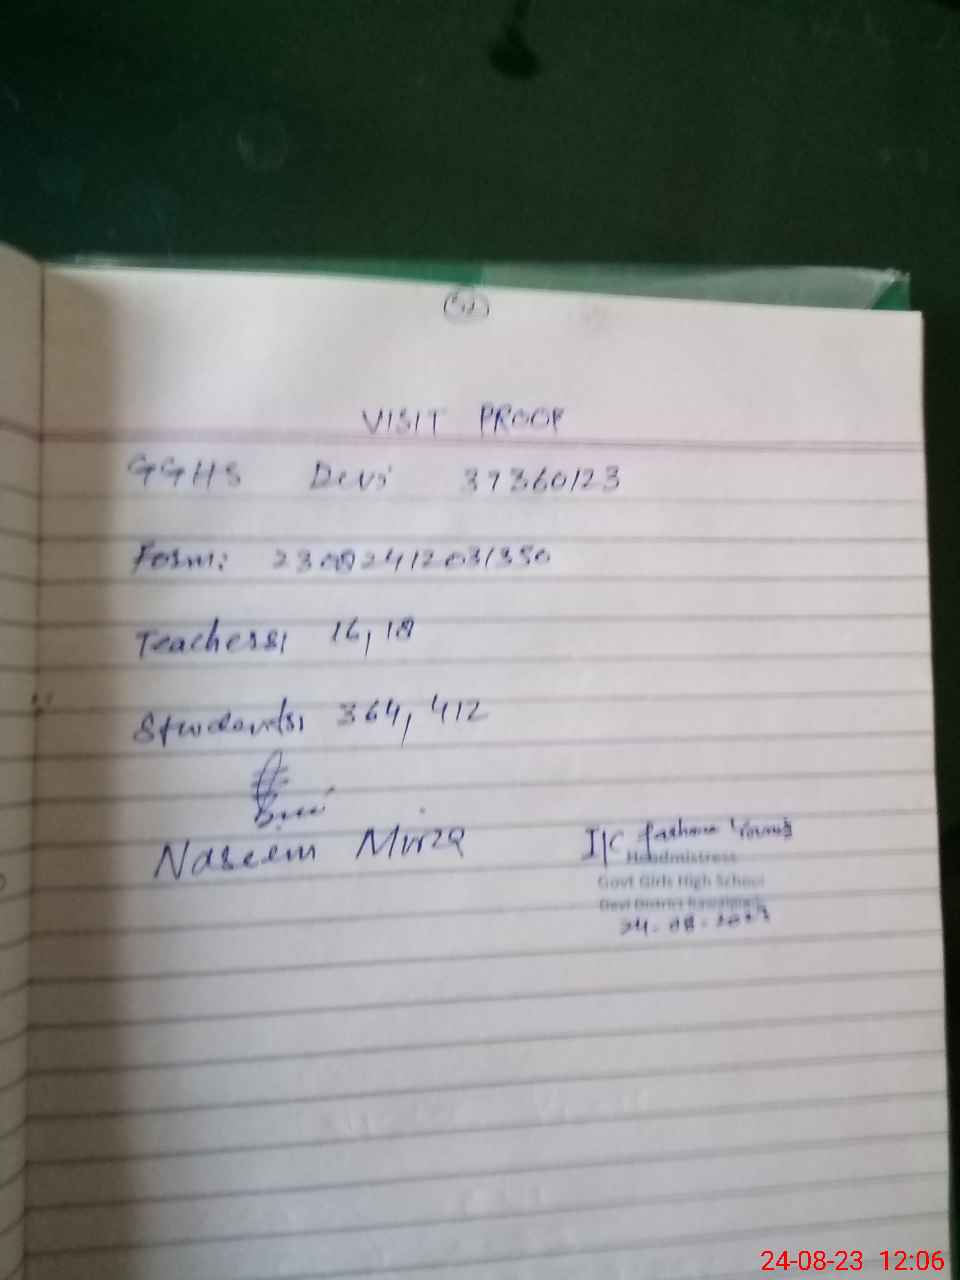 52
VISIT PROOF
GGHS Devi 37360123
Form: 23082412031350
Teachers, 16, 18
Students, 364, 412
Naseem Mirza
I/C Farhana Younis
Headmistress
Govt Girls High School
Devi District Rawalpindi
24-08-2023
24-08-23 12:06